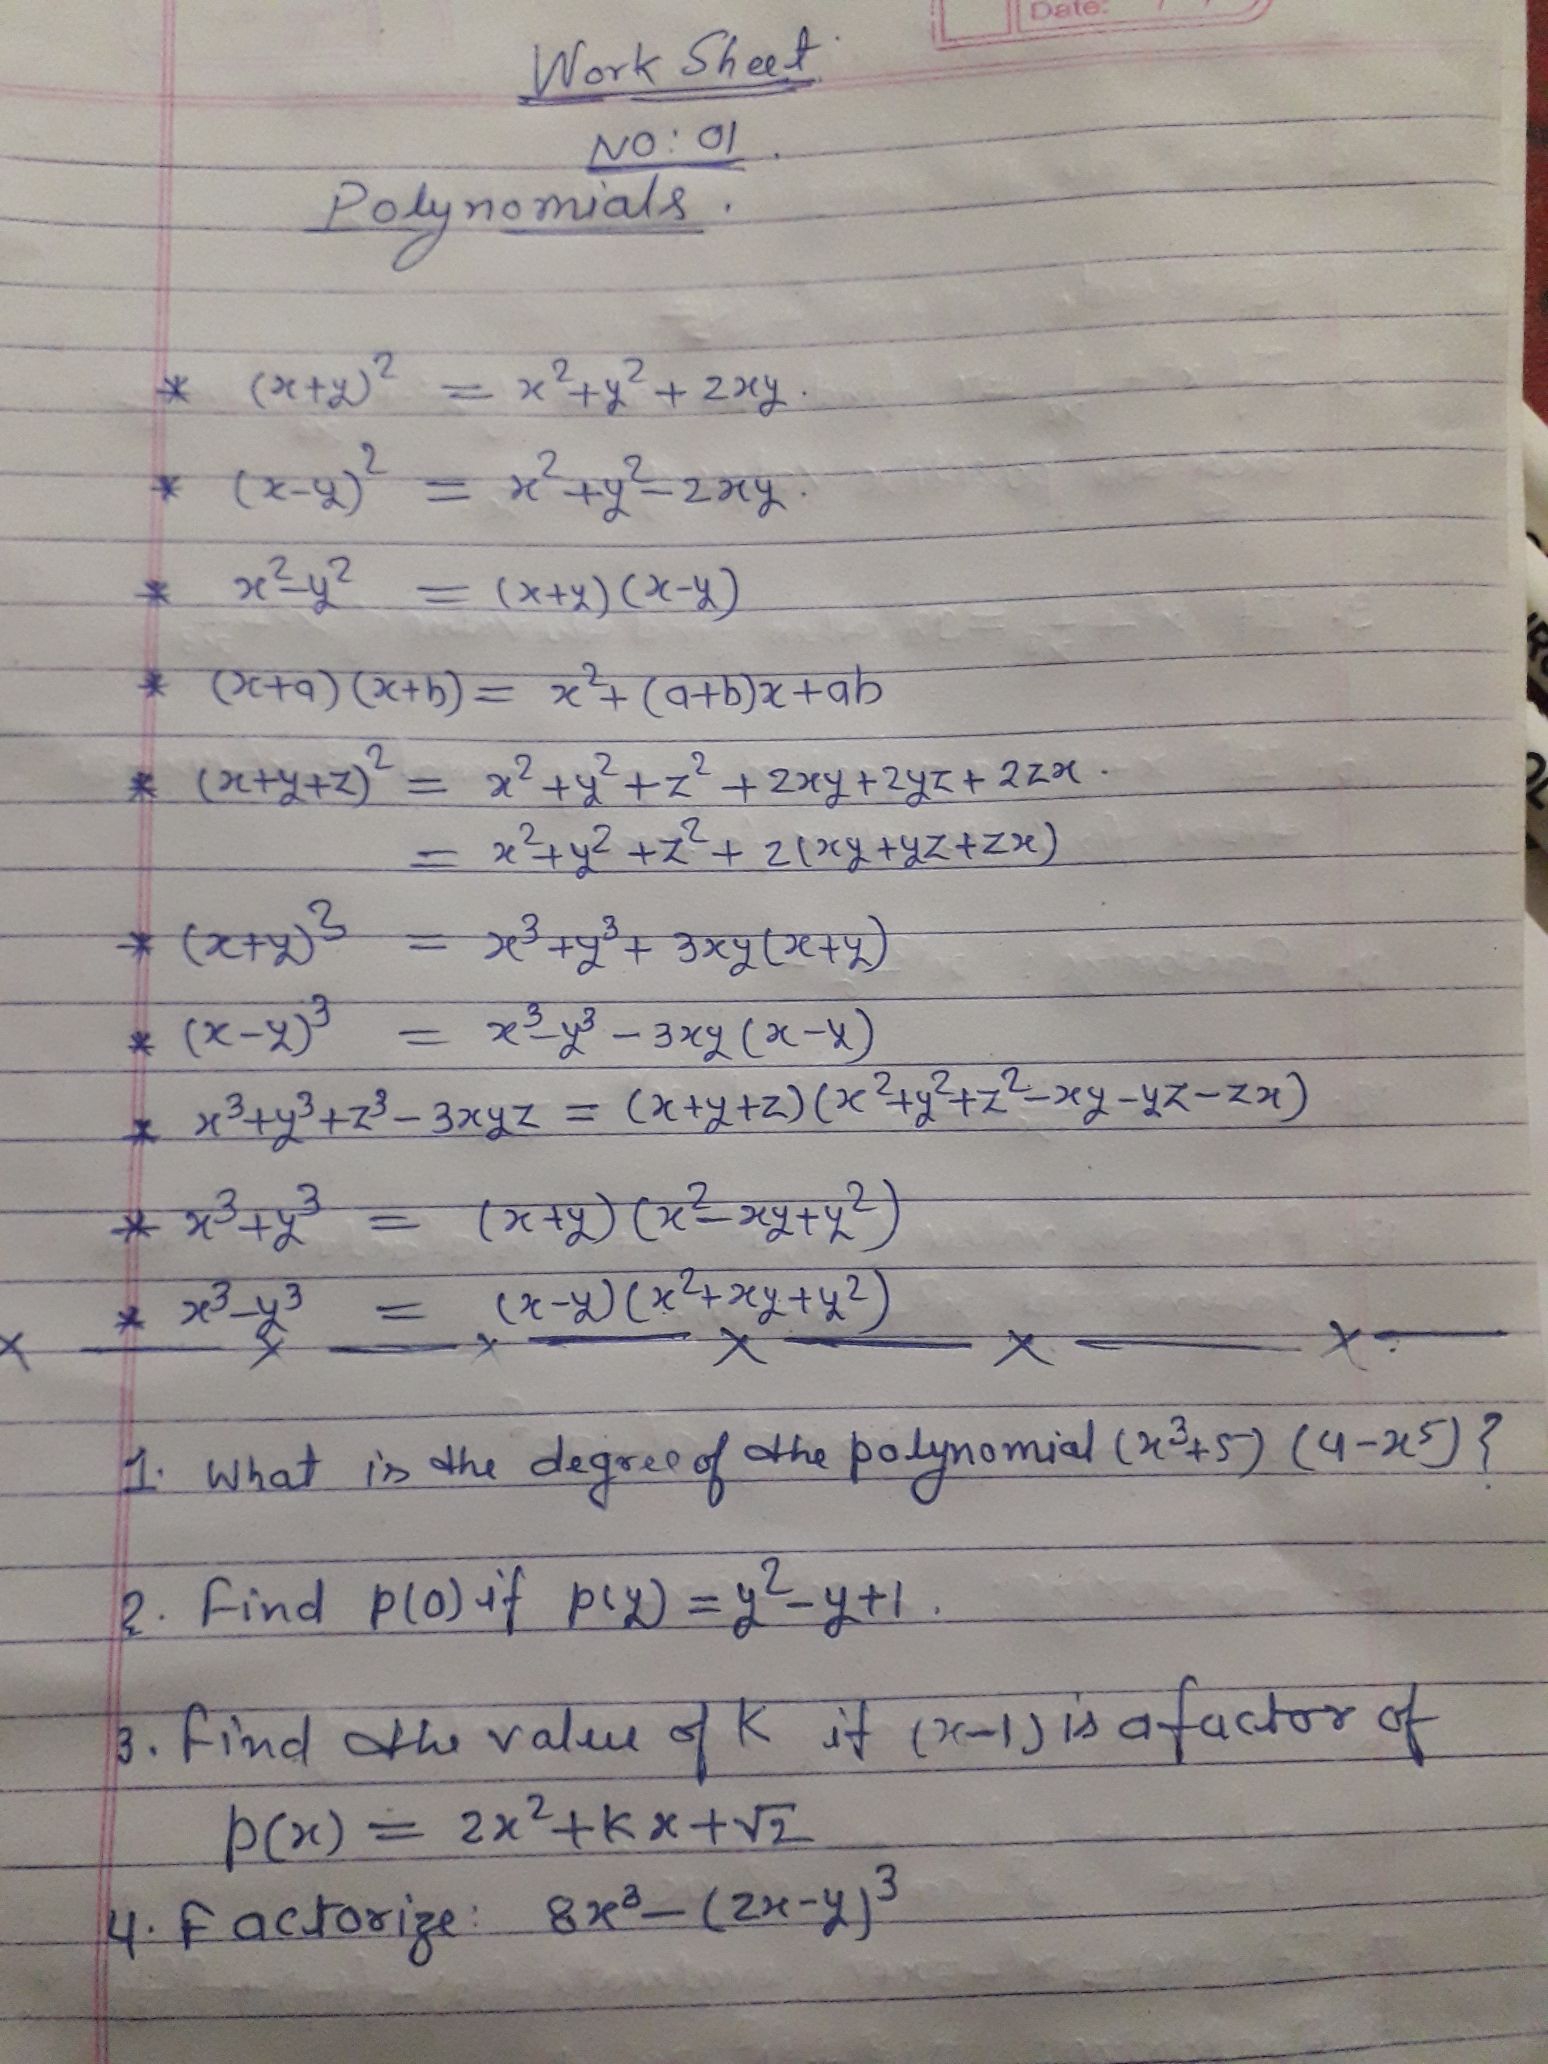 Date:
Work Sheet
NO: 01
Polynomials.
* (x+y)² = x²+y²+2xy.
* (x-y)² = x²+y²-2xy.
* x²-y² = (x+y)(x-y)
* (x+a)(x+b) = x²+(a+b)x+ab
* (x+y+z)² = x²+y²+z²+2xy+2yz+2zx.
= x²+y²+z²+2(xy+yz+zx)
* (x+y)³ = x³+y³+3xy(x+y)
* (x-y)³ = x³-y³-3xy(x-y)
* x³+y³+z³-3xyz = (x+y+z)(x²+y²+z²-xy-yz-zx)
* x³+y³ = (x+y)(x²-xy+y²)
* x³-y³ = (x-y)(x²+xy+y²)
x — x — x — x — x — x —
1. What is the degree of the polynomial (x³+5) (4-x⁵)?
2. Find p(0) if p(y) = y²-y+1.
3. Find the value of K if (x-1) is a factor of
p(x) = 2x²+Kx+√2
4. Factorize: 8x³-(2x-y)³